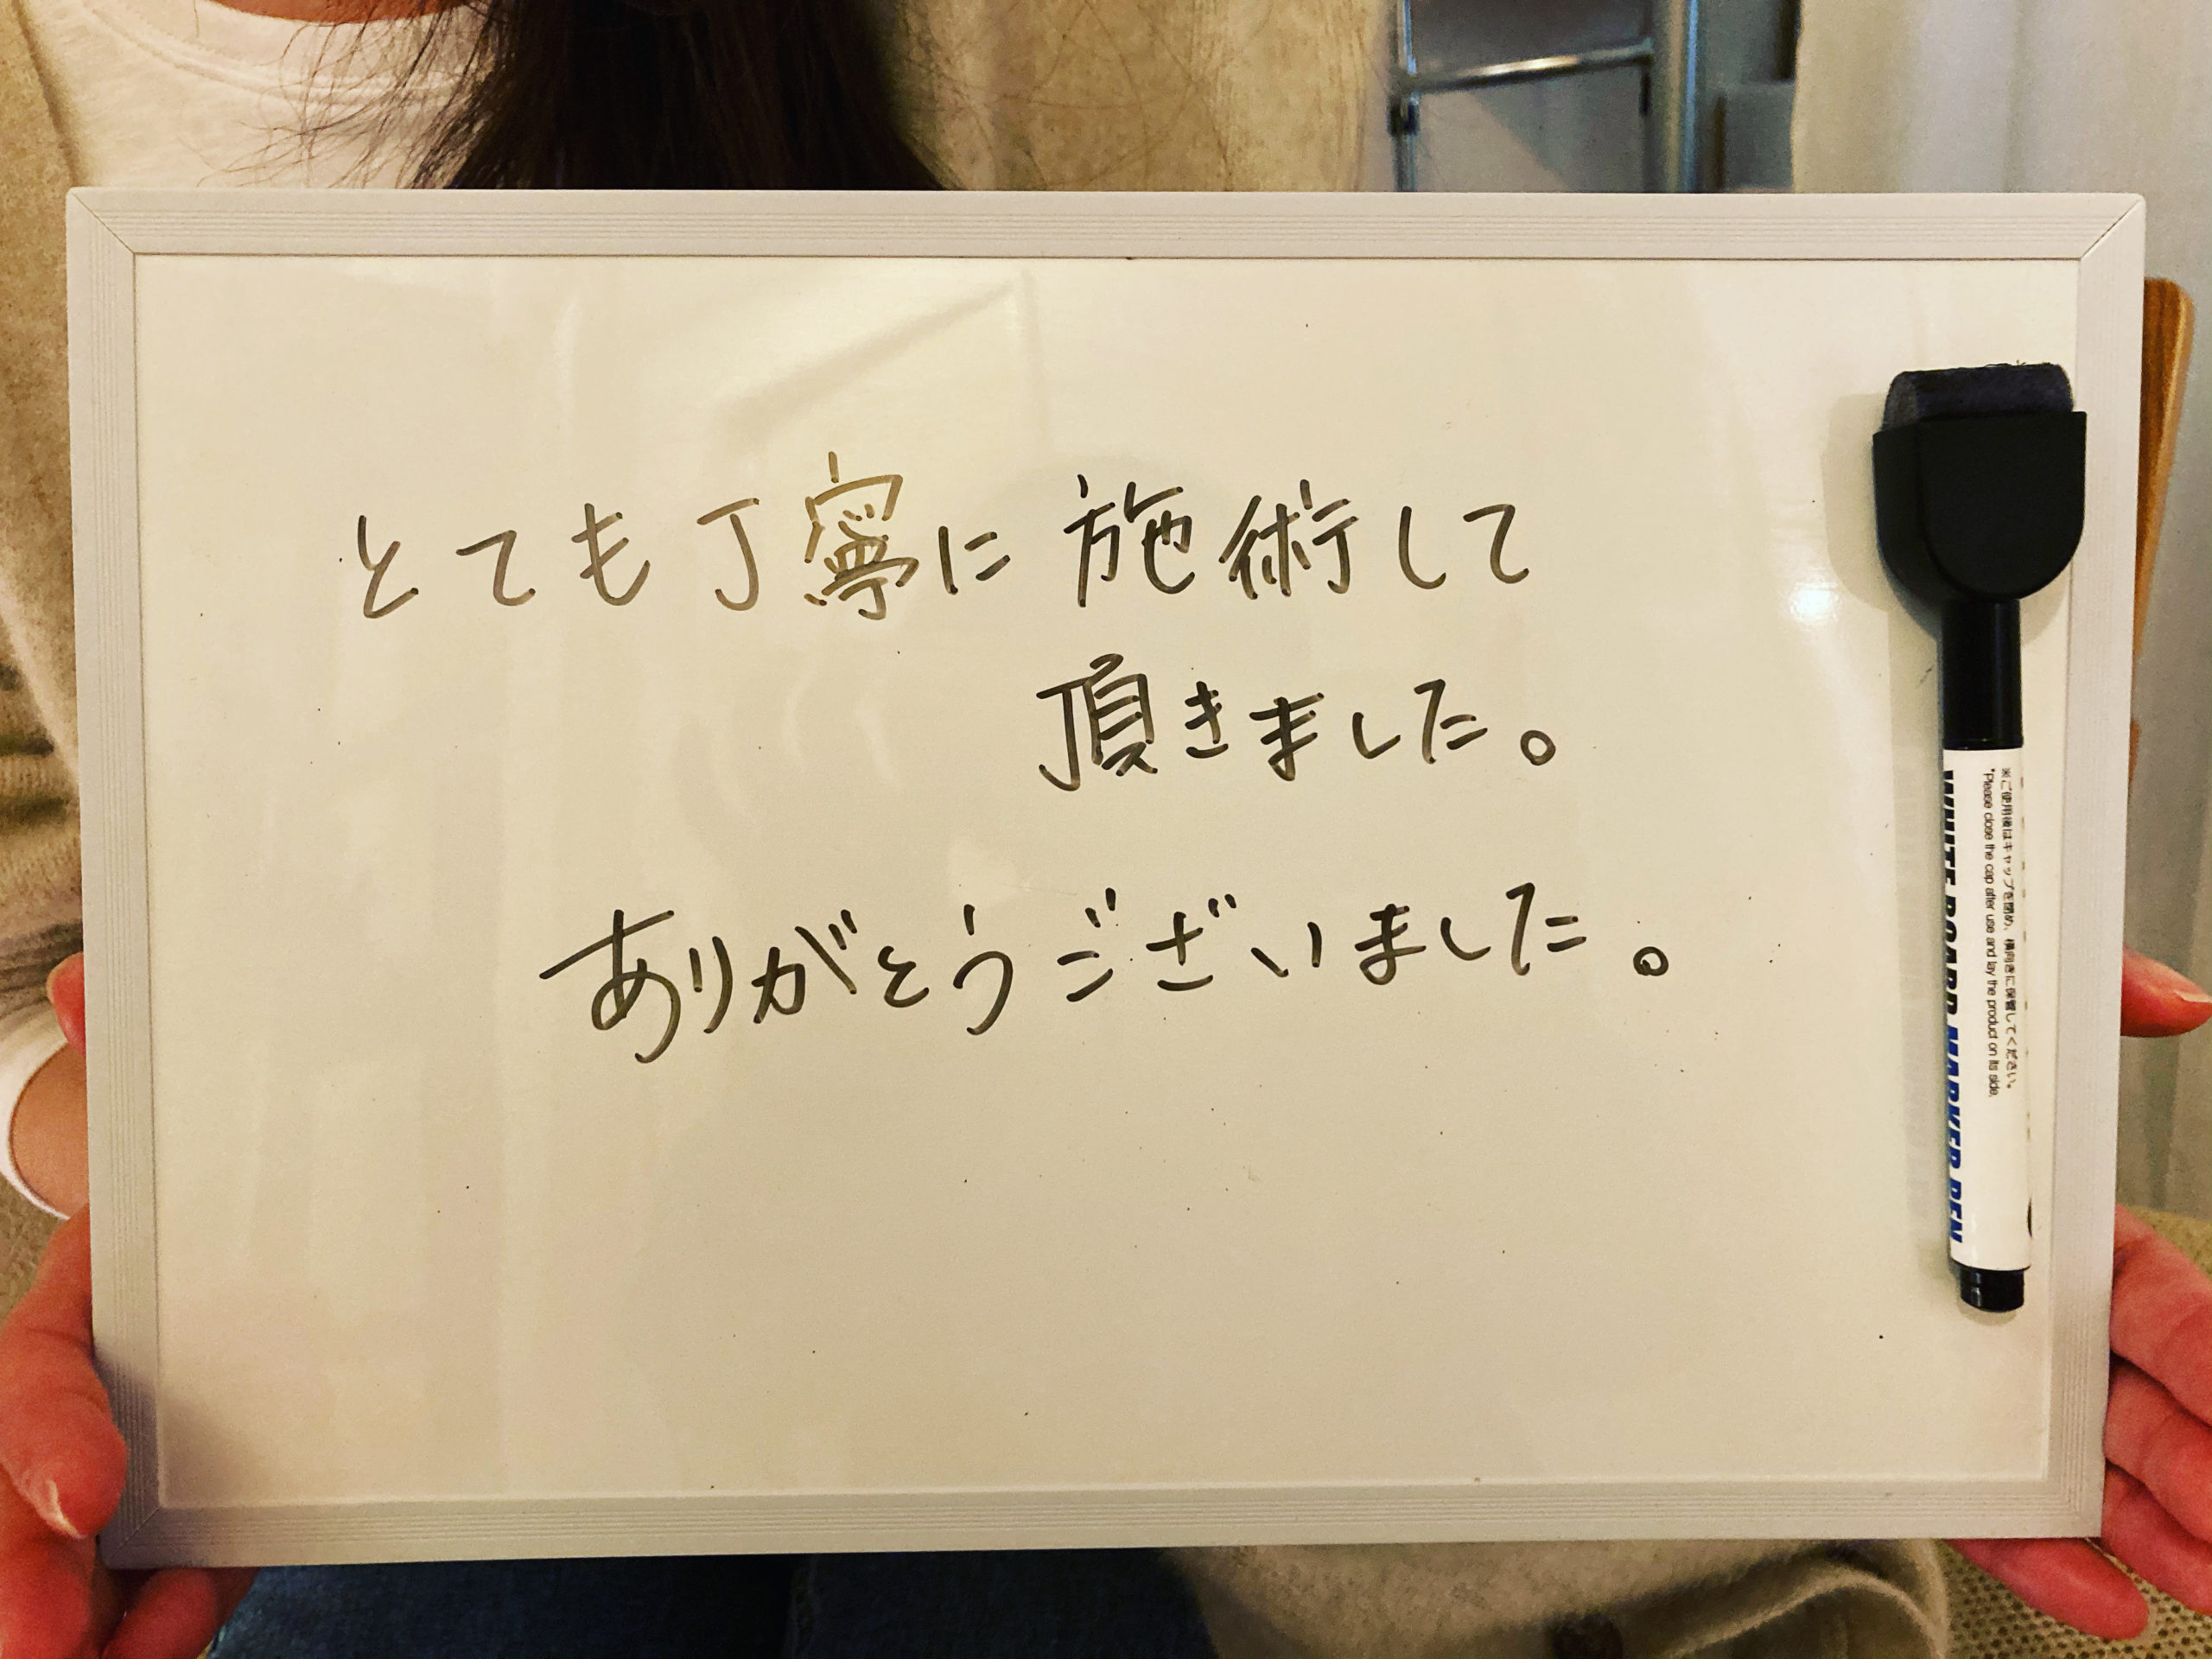 とても丁寧に施術して
頂きました。
ありがとうございました。
※ご使用後はキャップを閉め、横向きに保管してください。
*Please close the cap after use and lay the product on its side.
WHITE BOARD MARKER PEN